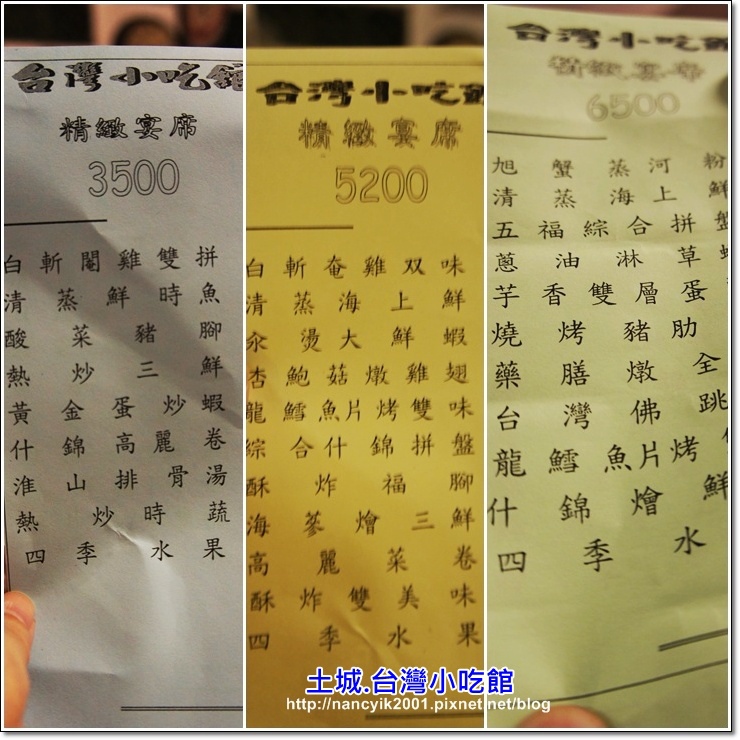 台灣小吃館
精緻宴席
3500
白斬閹雞雙拼
清蒸鮮時魚
酸菜豬腳
熱炒三鮮
黃金蛋炒蝦
什錦高麗卷
淮山排骨湯
熱炒時蔬
四季水果
台灣小吃館
精緻宴席
5200
白斬奄雞双味
清蒸海上鮮
汆燙大鮮蝦
杏鮑菇燉雞翅
龍鱈魚片烤雙味
綜合什錦拼盤
酥炸福腳
海蔘燴三鮮
高麗菜卷
酥炸雙美味
四季水果
台灣小吃館
精緻宴席
6500
旭蟹蒸河粉
清蒸海上鮮
五福綜合拼盤
蔥油淋草
芋香雙層蛋
燒烤豬肋
藥膳燉全
台灣佛跳
龍鱈魚片烤
什錦燴鮮
四季水
土城.台灣小吃館
http://nancyik2001.pixnet.net/blog